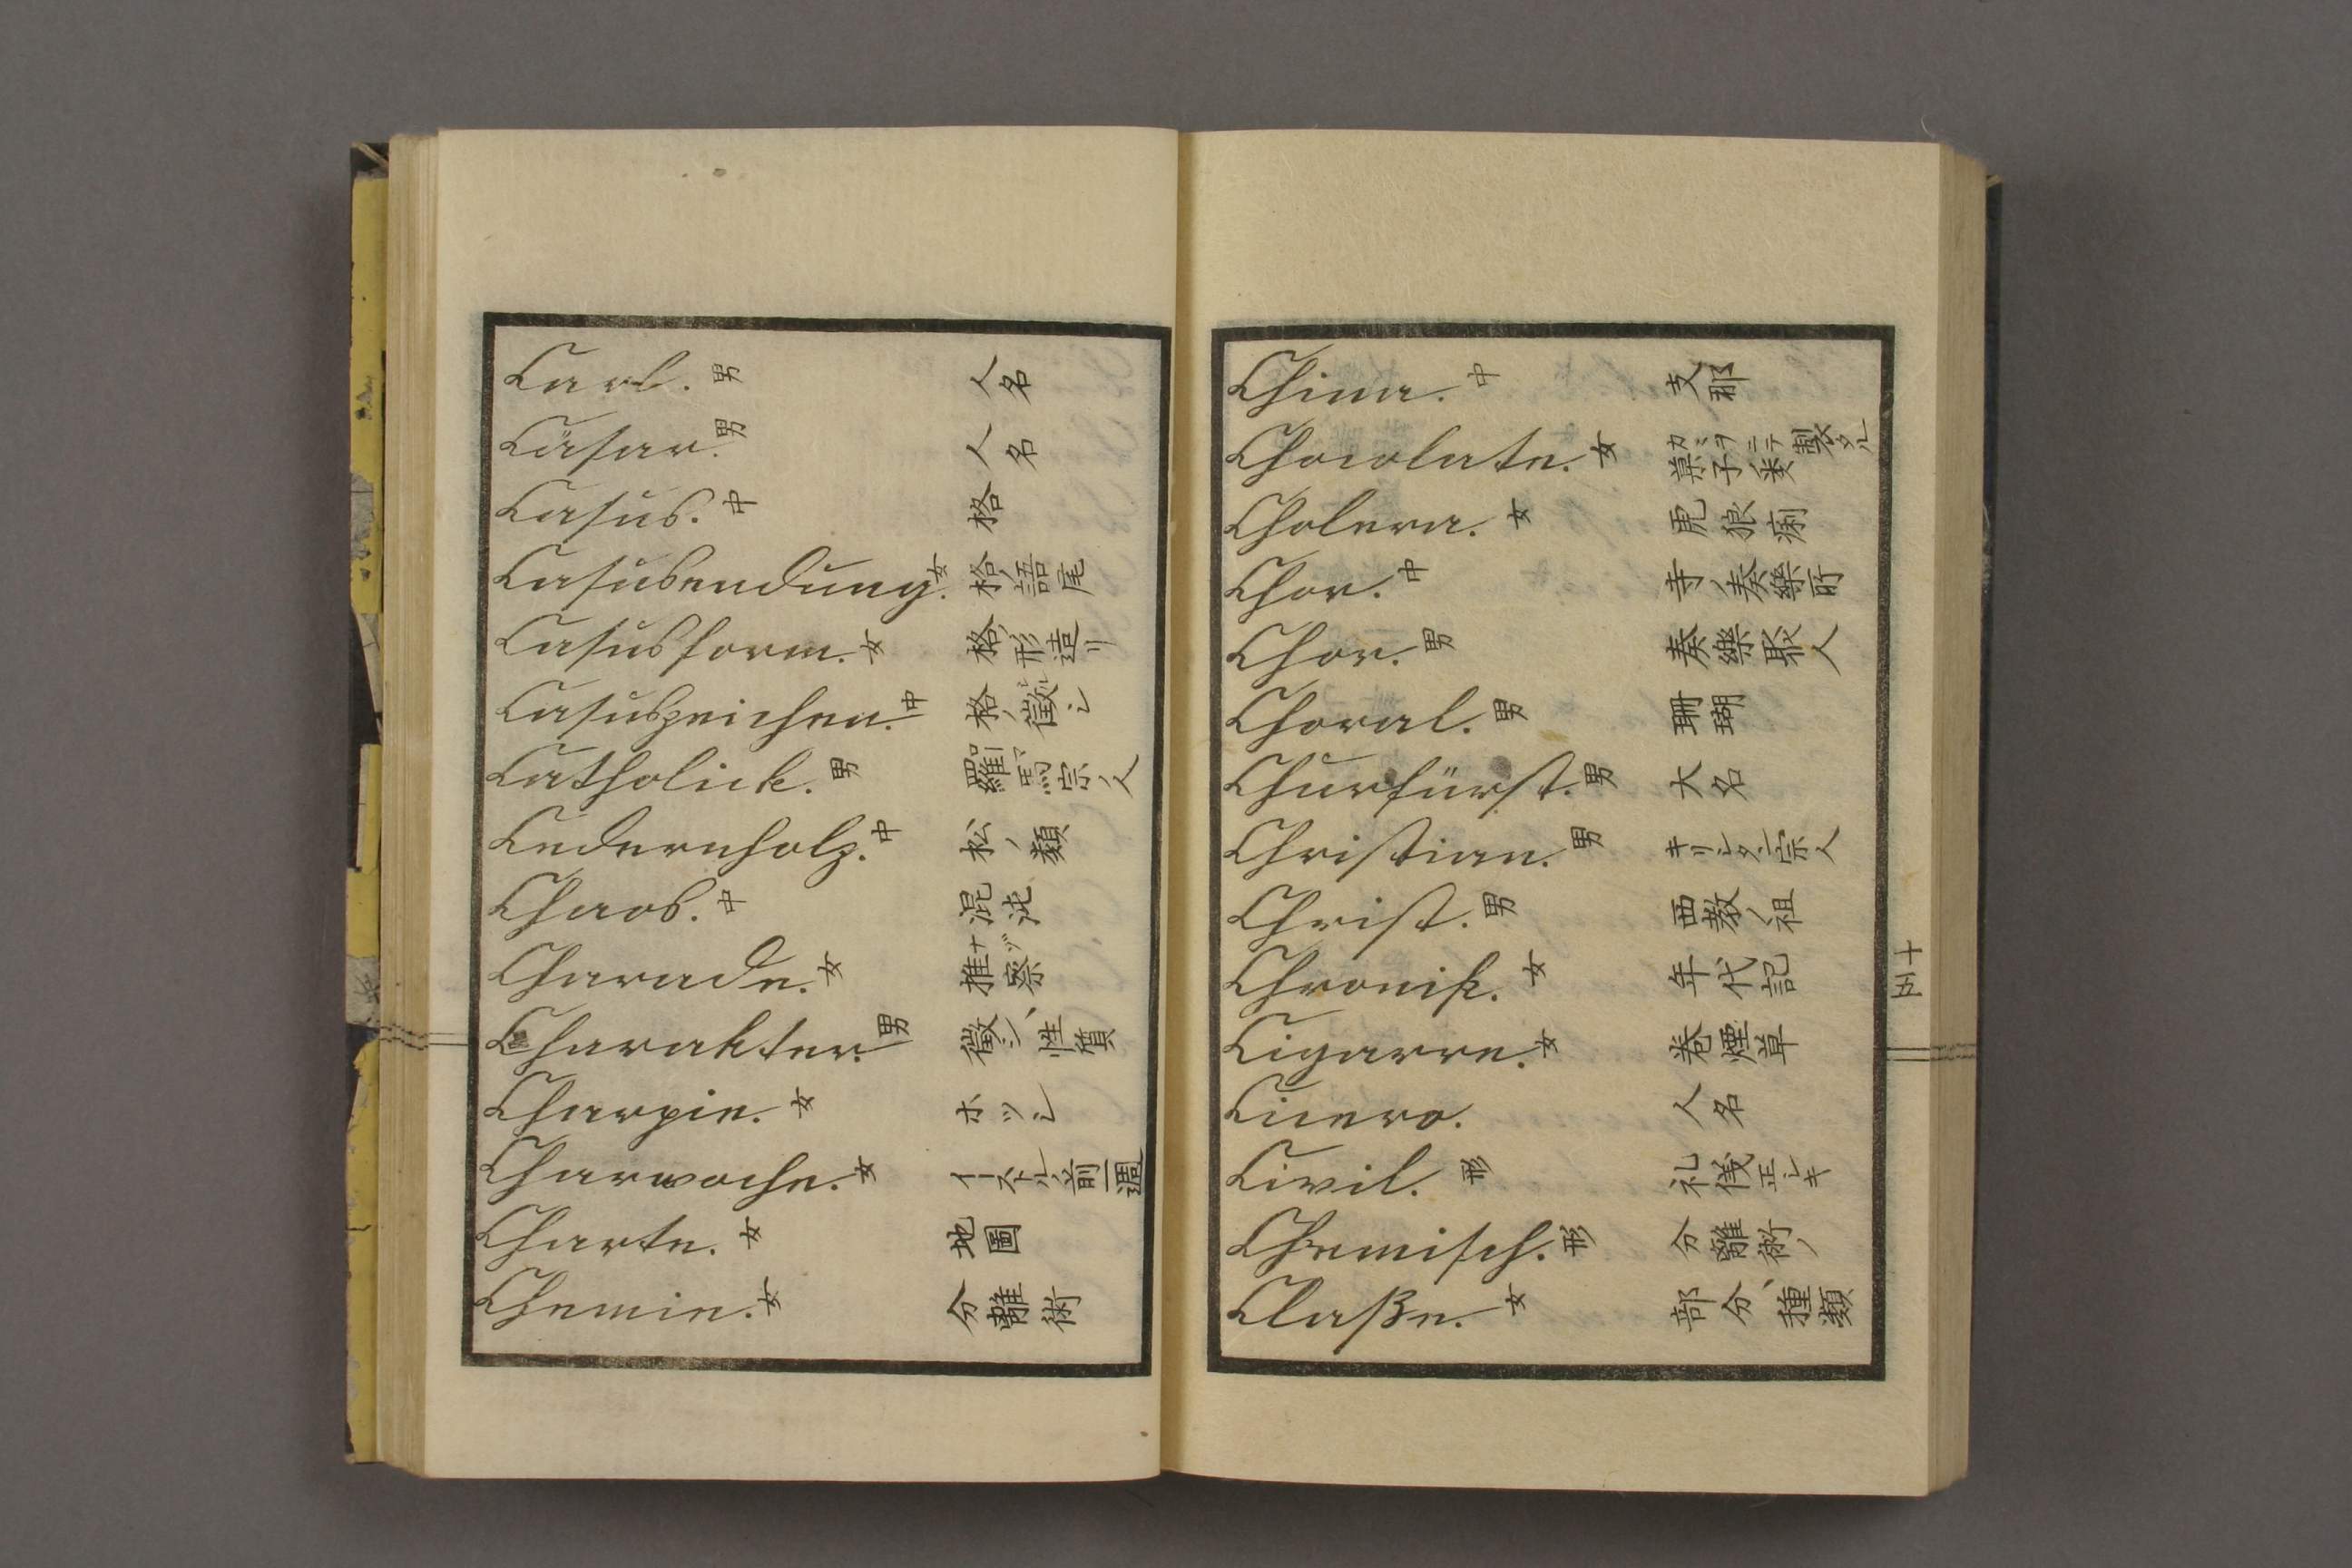 Carl. 男 人名
Cäsar. 男 人名
Casus. 中 格
Casusendung. 女 格ノ語尾
Casusform. 女 格ノ形造リ
Casuszeichen. 中 格ノ徴シ
Catholick. 男 羅馬宗ノ人
Cedernholz. 中 松ノ類
Chaos. 中 混沌
Charade. 女 推察
Charakter. 男 徴シ、性質
Charpie. 女 ホツシ
Charwoche. 女 イーストル前ノ一週
Charte. 女 地圖
Chemie. 女 分離術
China. 中 支那
Chocolate. 女 菓子ノ類
Cholera. 女 虎狼痢
Chor. 中 寺ノ奏樂所
Chor. 男 奏樂聚人
Choral. 男 珊瑚
Churfürst. 男 大名
Christian. 男 キリシタン宗ノ人
Christ. 男 西教ノ祖
Chronik. 女 年代記
Cigarre. 女 巻煙草
Cicero. 人名
Civil. 形 礼儀正シキ
Chemisch. 形 分離術ノ
Claße. 女 部分、種類
十五